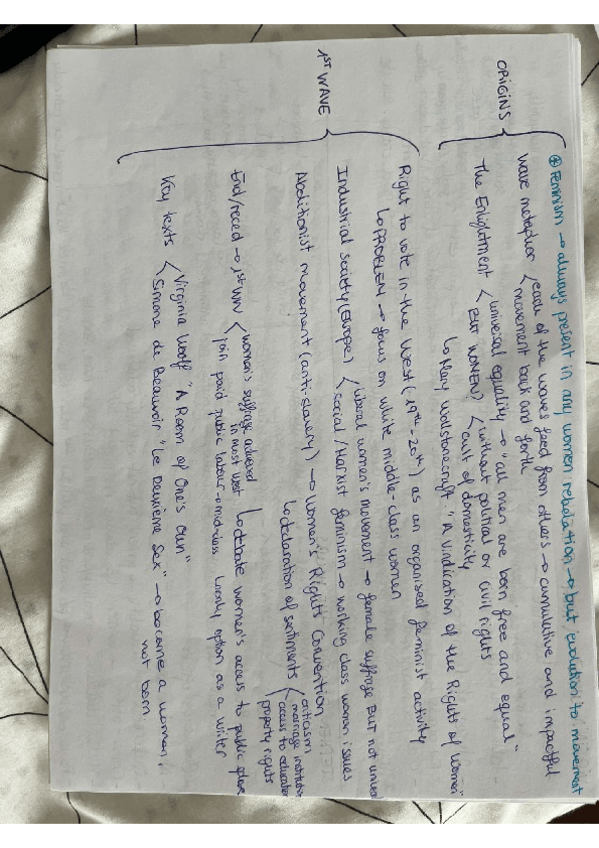 ⊕ Feminism → always present in any women rebelation → but evolution to movement
ORIGINS
wave metaphor < each of the waves feed from others → cumulative and impactful
movement back and forth
The Enlightment < universal equality → "all men are born free and equal"
BUT WOMEN < without political or civil rights
cult of domesticity
↳ Mary Wollstonecraft "A Vindication of the Rights of Women"
1ST WAVE
Right to vote in the West (19th-20th) as an organized feminist activity
↳ PROBLEM → focus on white middle-class women
Industrial society (Europe) < liberal women's movement → female suffrage BUT not
social / Marxist feminism → working class women issues
Abolitionist movement (anti-slavery) → Women's Rights Convention
↳ declaration of sentiments < criticism
marriage institution
access to education
property rights
End/reced → 1st WW < women's suffrage achieved
in most West ↳ debate women's access to public
join paid public labour → midwives only option as a writer
Key texts < Virginia Woolf "A Room of One's Own"
Simone de Beauvoir "Le Deuxième Sex" → become a woman,
not born